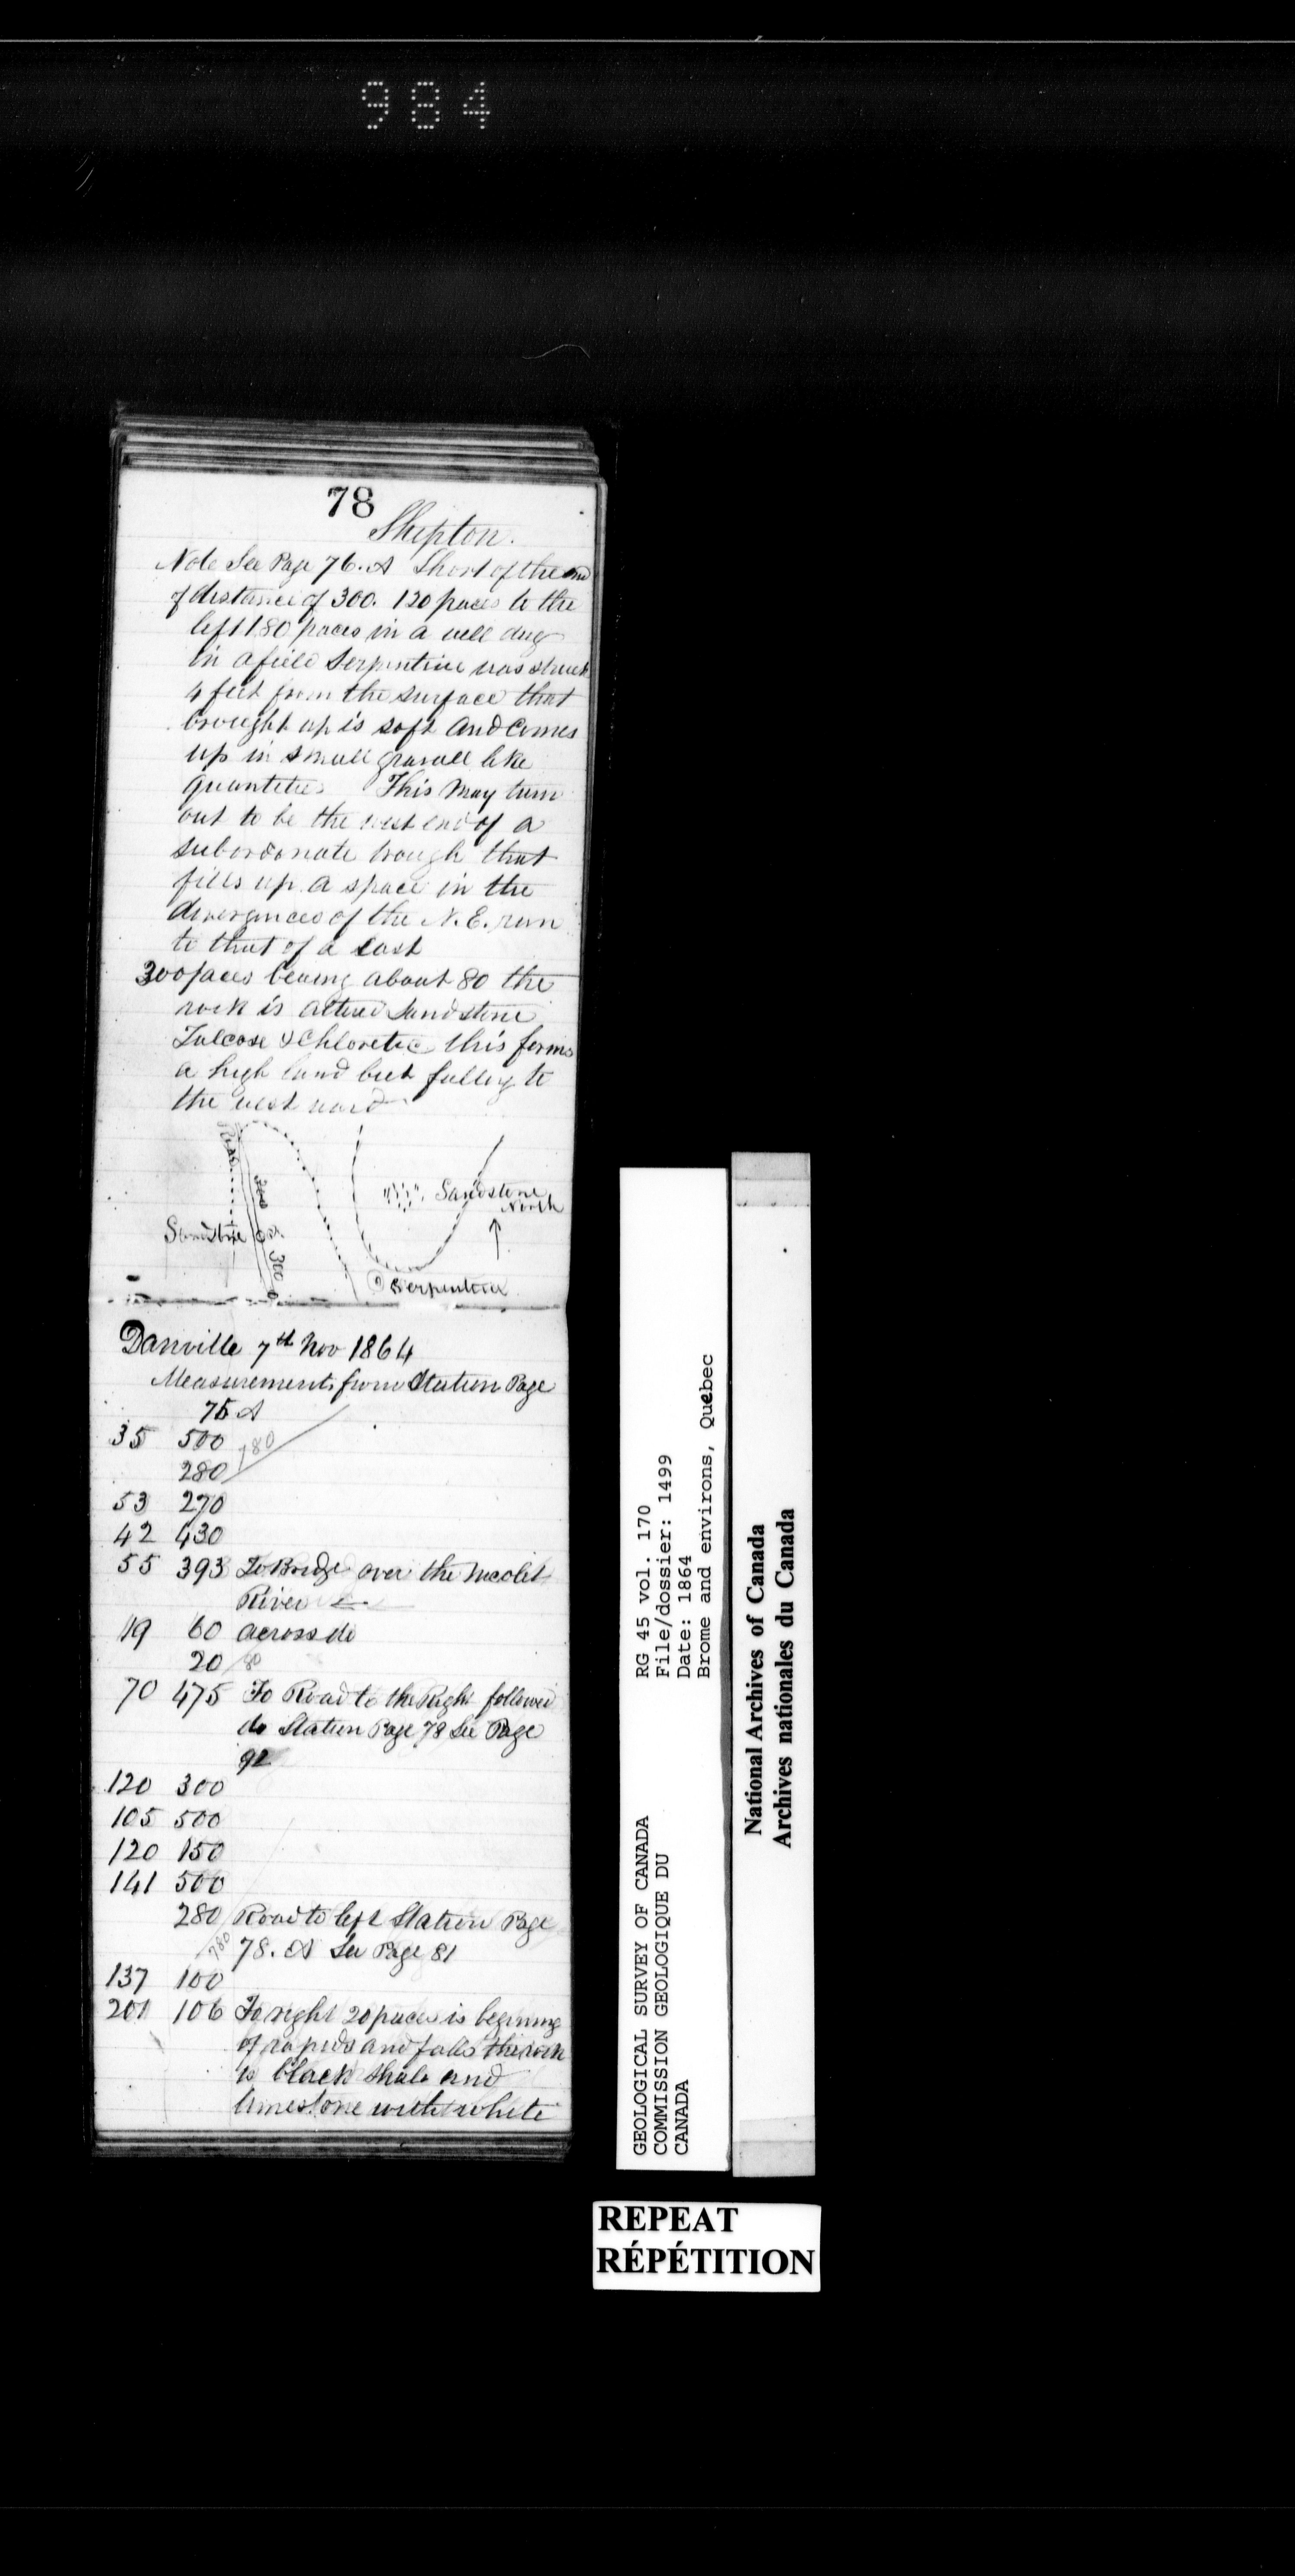 984
78
Shipton.
Note See Page 76. A Short of the end
of distance of 300. 120 paces to the
left 180 paces in a well dug
in a field Serpentine was struck
4 feet from the surface that
brought up is soft and comes
up in small gravell like
quantities This may turn
out to be the west end of a
subordonate trough that
fills up a space in the
divergences of the N.E. run
to that of a East
300 paces bearing about 80 the
rock is altered Sandstone
Talcose & Chloretic this forms
a high land but falling to
the west ward
Road
300
Sandstone
North
Sandstone
300
Serpentine
Danville 7th Nov 1864
Measurements from Station Page
76 A
35 500
780
280
53 270
42 430
55 393 To Bridge over the Nicolet
River
19 60 across do
20 80
70 475 To Road to the Right followed
do Station Page 78 See Page
92
120 300
105 500
120 150
141 500
280 Road to left Station Page
780 78. A See Page 81
137 100
201 106 To right 20 paces is begining
of rapids and falls the rock
is black shale and
limestone with white
GEOLOGICAL SURVEY OF CANADA
COMMISSION GEOLOGIQUE DU
CANADA
RG 45 vol. 170
File/dossier: 1499
Date: 1864
Brome and environs, Quebec
National Archives of Canada
Archives nationales du Canada
REPEAT
RÉPÉTITION